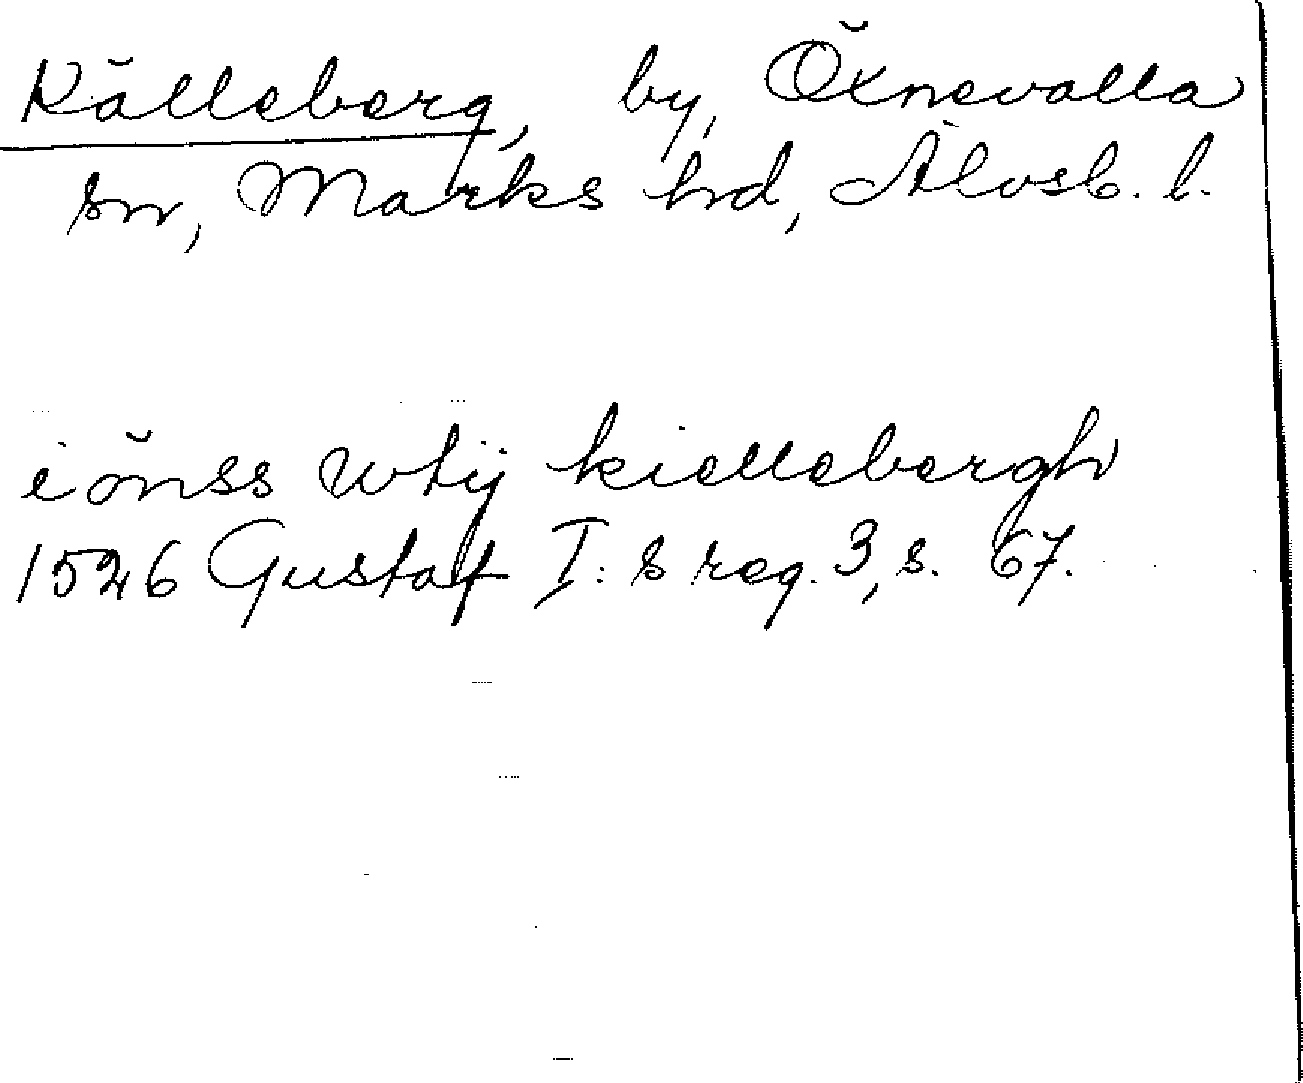 Källeberg, by, Öxnevalla
sn, Marks hd, Älvsb. l.
iönss wtij kiellebergh
1526 Gustaf I: s reg. 3, s. 67.